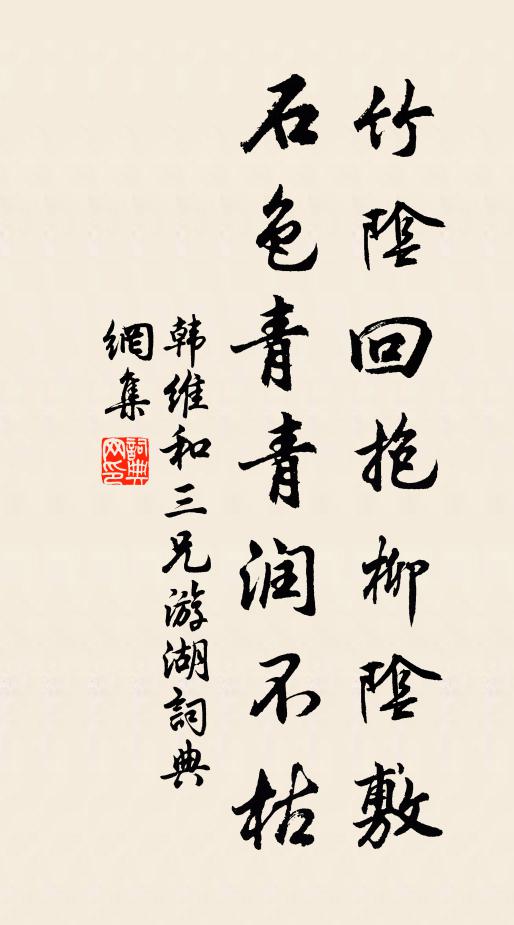 竹陰回抱柳陰敷
石色青青润不枯
韩維和三兄游湖詞典
網集
詞典網印